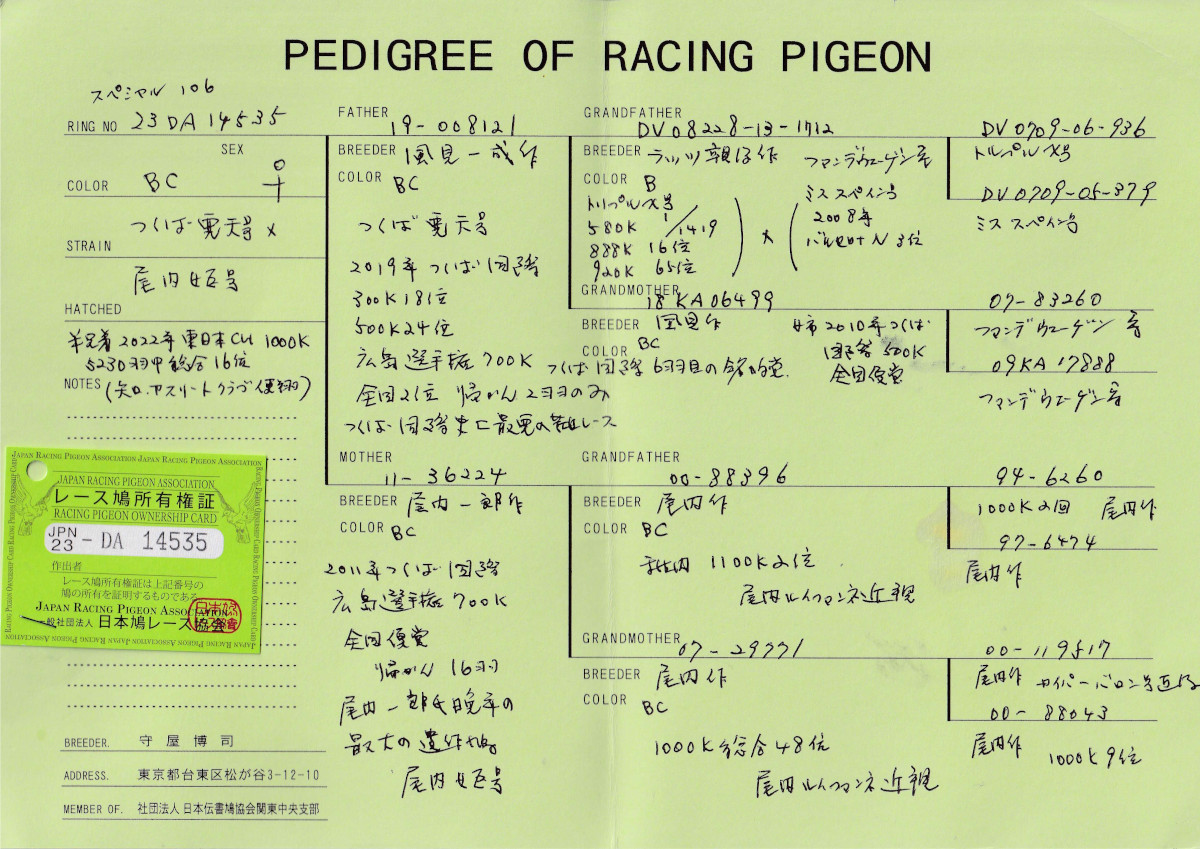 PEDIGREE OF RACING PIGEON
スペシャル 106
RING NO 23DA14535
SEX ♀
COLOR BC
つくば 号 ×
STRAIN
尾内 号
HATCHED
2022年 東日本CH 1000K
5230羽中 総合16位
NOTES (矢口.アスリートクラブ使翔)
JAPAN RACING PIGEON ASSOCIATION
レース鳩所有権証
RACING PIGEON OWNERSHIP CARD
JPN 23 - DA 14535
作出者
レース鳩所有権証は上記番号の
鳩の所有を証明するものである
JAPAN RACING PIGEON ASSOCIATION
一般社団法人 日本鳩レース協会
BREEDER. 守屋博司
ADDRESS. 東京都台東区松が谷3-12-10
MEMBER OF. 社団法人 日本伝書鳩協会関東中央支部
FATHER 19-008121
BREEDER 風見一成作
COLOR BC
つくば 号
2019年 つくば国際
300K18位
500K24位
広島選手権 700K
全国2位 帰かん 2羽のみ
つくば国際史上最悪の レース
MOTHER 11-36224
BREEDER 尾内一郎作
COLOR BC
2011年つくば国際
広島選手権 700K
全国優賞
帰かん 16羽
尾内一郎氏晩年の
最大の遺作
尾内 号
GRANDFATHER DV08228-13-1712
BREEDER ラッツ親仔作 ファンデウェーゲン系
COLOR B
トリプルX号
580K 1/1419
888K 16位
920K 65位
×
ミス スペイン号
2008年
バルセロナN 3位
GRANDMOTHER 18KA06499
BREEDER 風見作
COLOR BC
姉 2010年つくば
国際 500K
全国優賞
つくば国際 6羽目の
GRANDFATHER 00-88396
BREEDER 尾内作
COLOR BC
1100K2位
尾内ルイフマンネ近親
GRANDMOTHER 07-29771
BREEDER 尾内作
COLOR BC
1000K総合48位
尾内ルイフマンネ近親
DV0709-06-936
トリプルX号
DV0709-05-379
ミス スペイン号
07-83260
ファンデウェーゲン系
09KA17888
ファンデウェーゲン系
94-6260
1000K2回 尾内作
97-6474
尾内作
00-119517
尾内作 カイパーバロン号
00-88043
尾内作 1000K9位